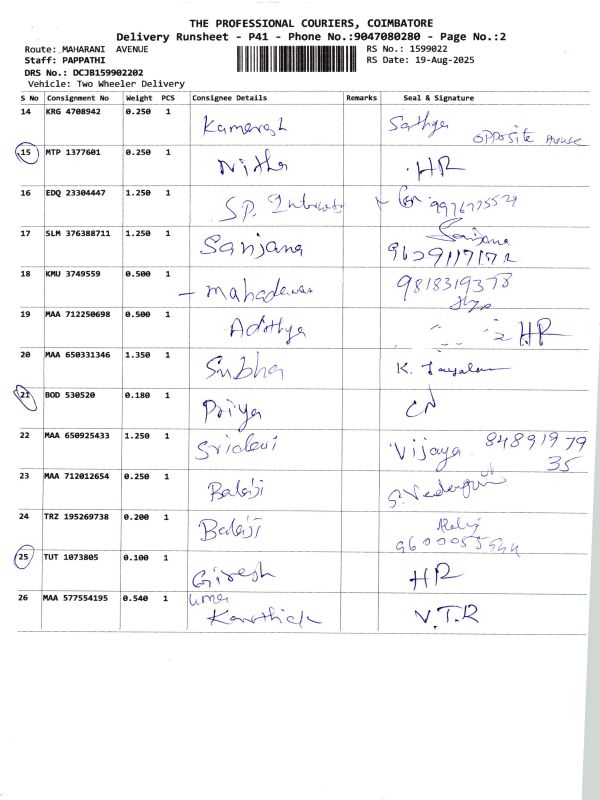 THE PROFESSIONAL COURIERS, COIMBATORE
Delivery Runsheet - P41 - Phone No.:9047080280 - Page No.:2
Route: MAHARANI AVENUE
RS No.: 1599022
Staff: PAPPATHI
RS Date: 19-Aug-2025
DRS No.: DCJB159902202
Vehicle: Two Wheeler Delivery
S No Consignment No Weight PCS Consignee Details Remarks Seal & Signature
14 KRG 4708942 0.250 1 Kamaresh Sathya opposite House
15 MTP 1377601 0.250 1 Nitha HR
16 EDQ 23304447 1.250 1 S.P.
17 SLM 376388711 1.250 1 Sanjana Sanjana
18 KMU 3749559 0.500 1 Mahadevan 9818319378
19 MAA 712250698 0.500 1 Adithya HR
20 MAA 650331346 1.350 1 Subha K.
21 BOD 530520 0.180 1 Priya
22 MAA 650925433 1.250 1 Sridevi Vijaya 84891979
35
23 MAA 712012654 0.250 1 Balaji
24 TRZ 195269738 0.200 1 Balaji
25 TUT 1073805 0.100 1 Giresh HR
26 MAA 577554195 0.540 1 Uma
Karthick V.T.R